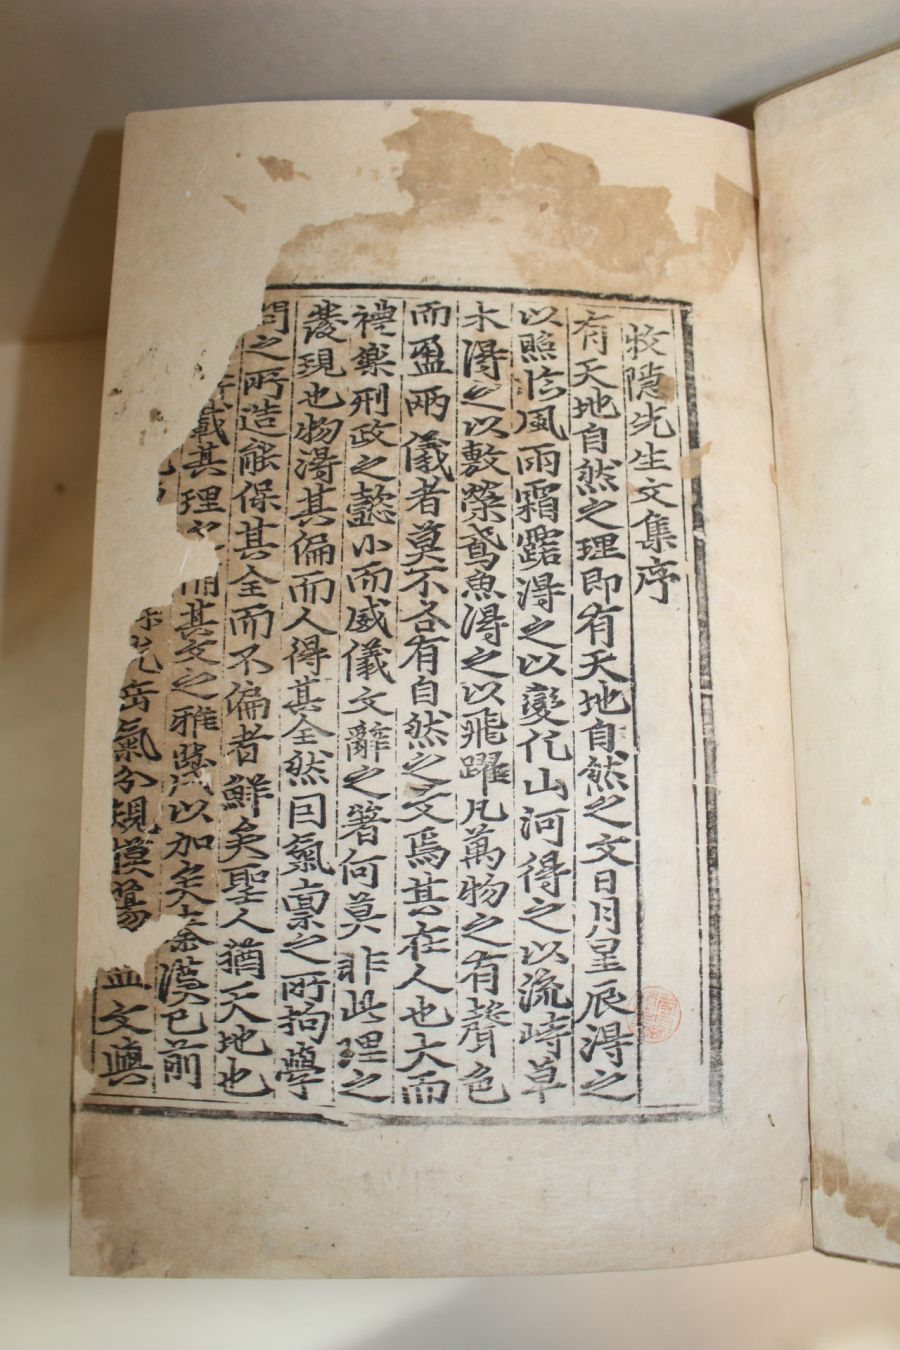 牧隱先生文集序
有天地自然之理即有天地自然之文日月星辰淂之
以照临風雨霜露淂之以變化山河得之以流峙草
木淂之以敷榮鳶魚淂之以飛躍凡萬物之有聲色
而盈兩儀者莫不各有自然之文焉其在人也大而
禮樂刑政之懿小而威儀文辭之著何莫非此理之
發現也物淂其偏而人得其全然因氣禀之所拘學
問之所造能保其全而不偏者鮮矣聖人猶天地也
載其理 其文之雅 以加矣 漢已前
岳氣分規模 文與